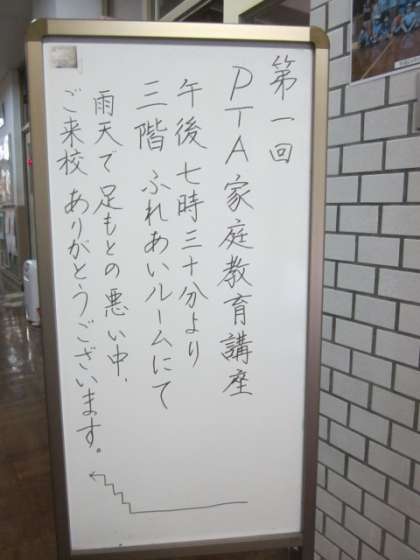 第一回
PTA家庭教育講座
午後七時三十分より
三階 ふれあいルームにて
雨天で足もとの悪い中、
ご来校 ありがとうございます。